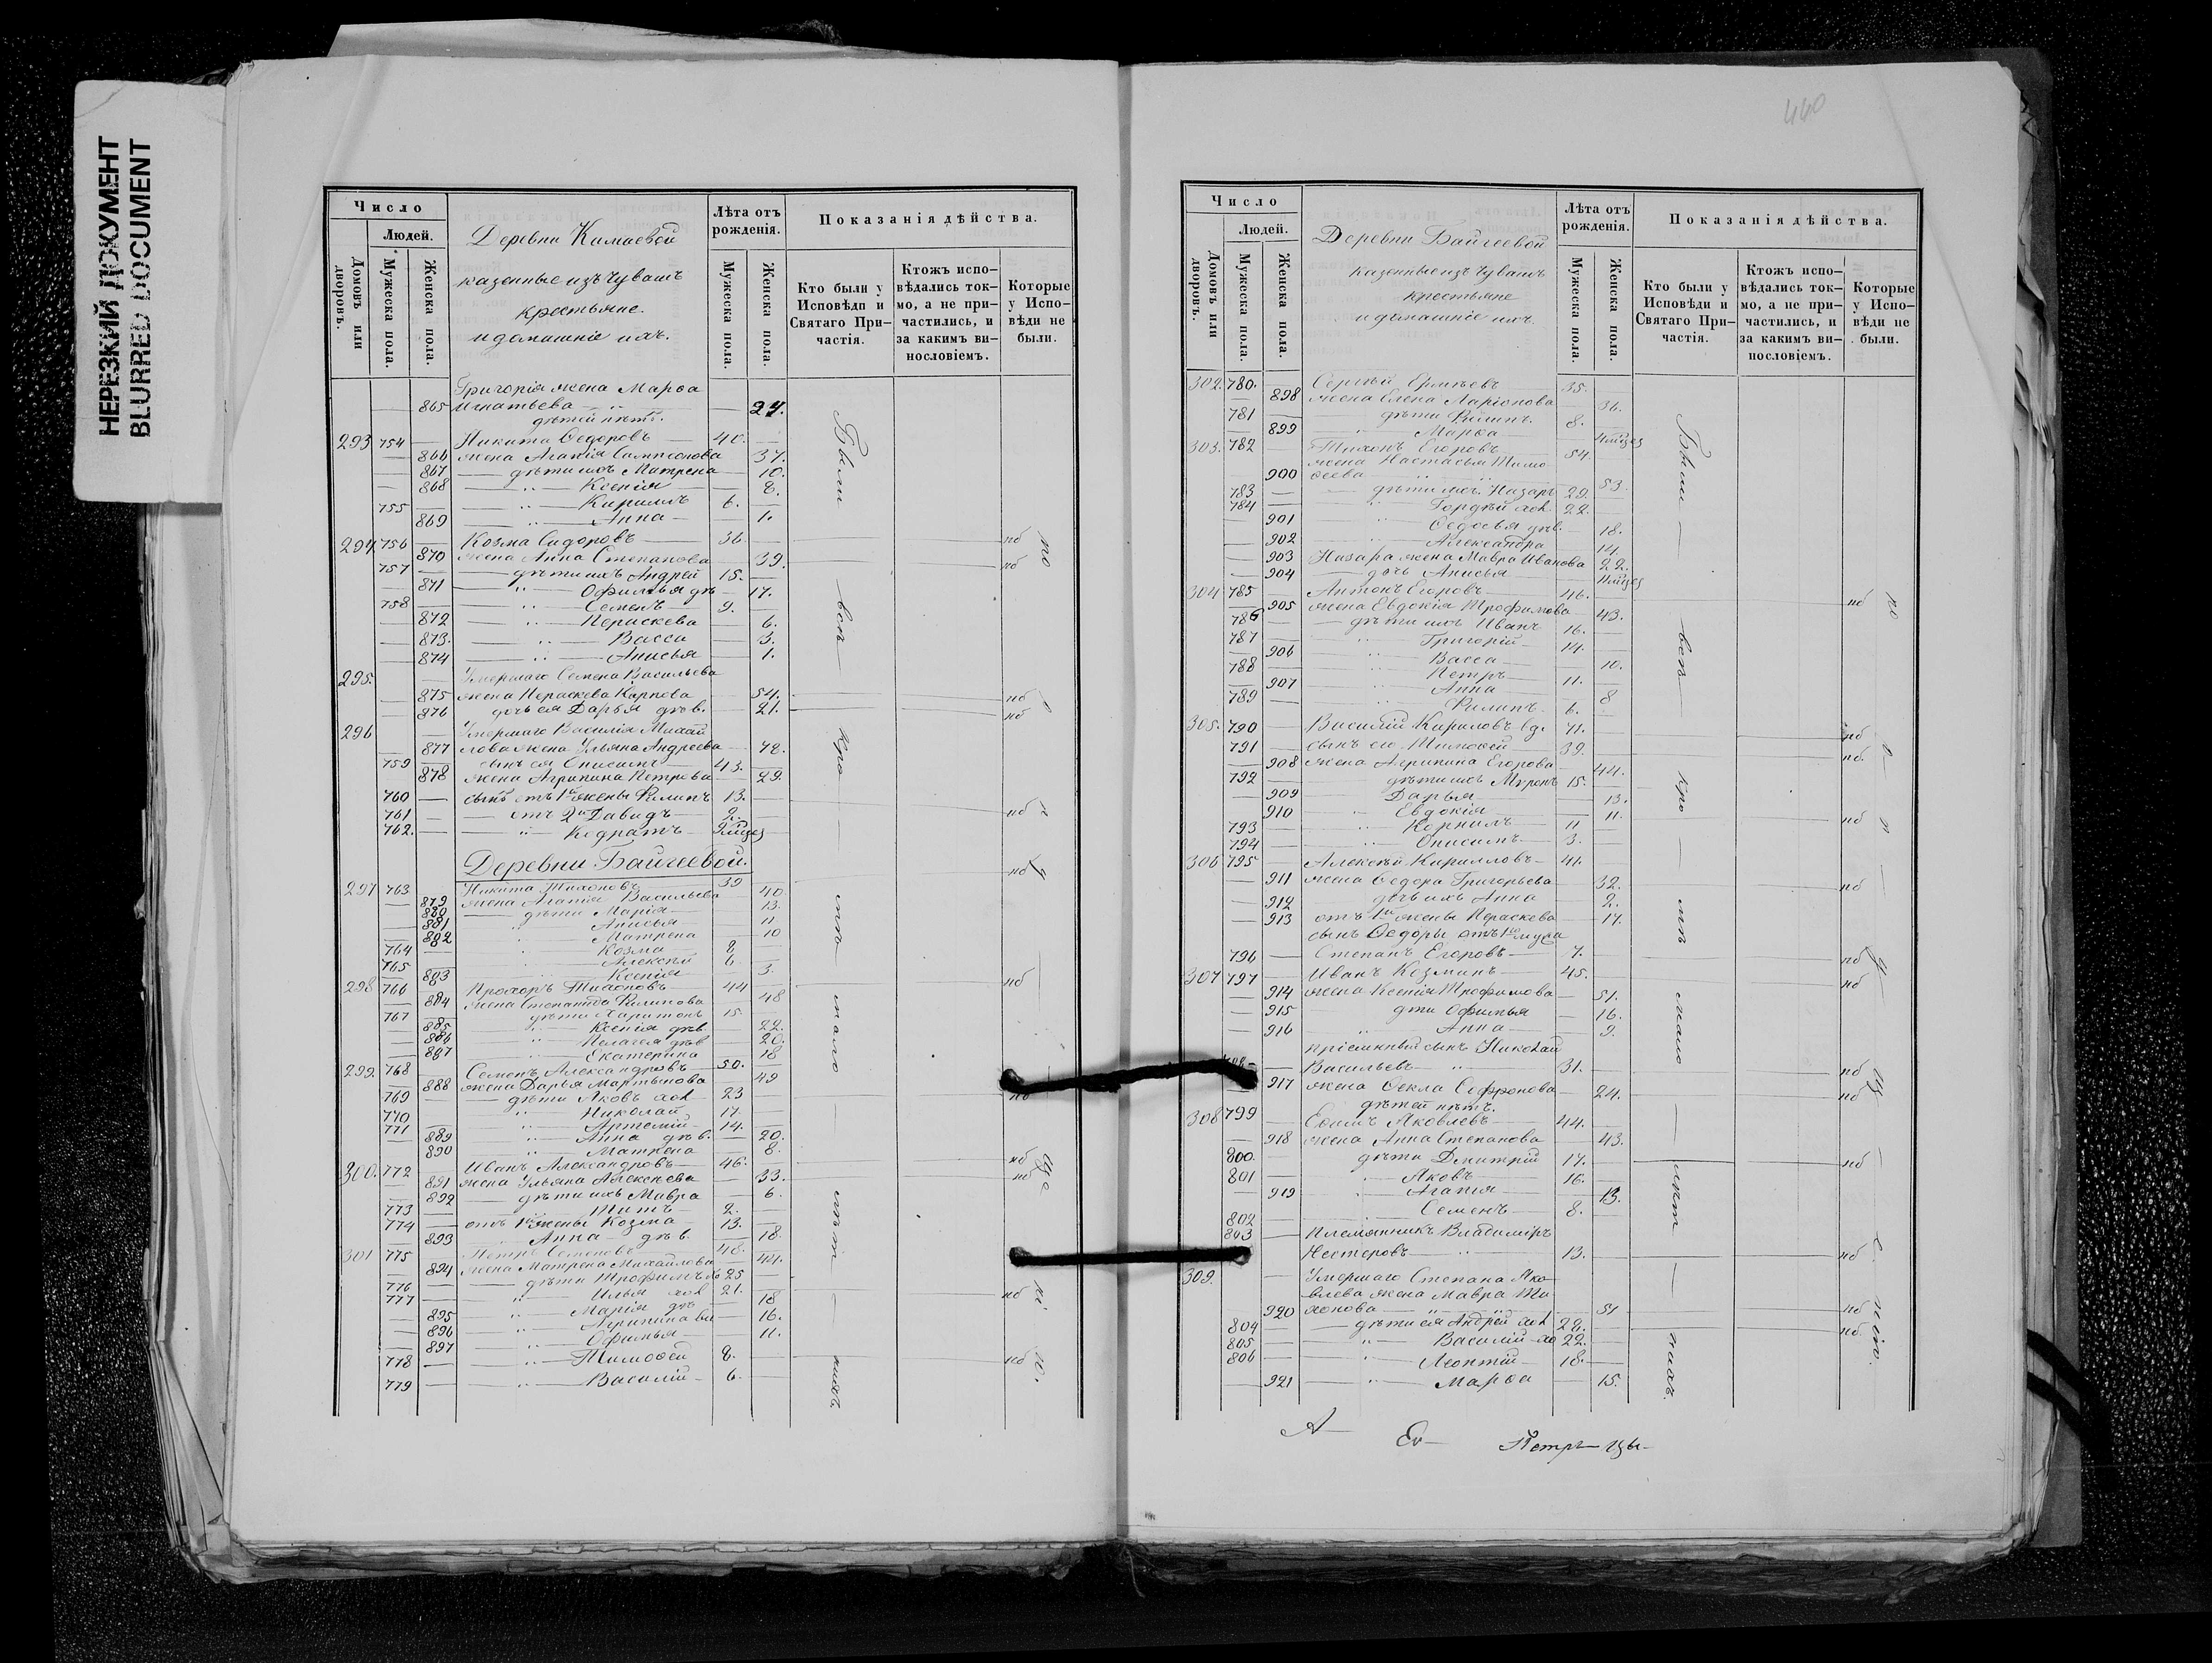 НЕРЕЗКИЙ ДОКУМЕНТ
BLURRED DOCUMENT
Число
Людей.
Домовъ или дворовъ.
Мужеска пола.
Женска пола.
Деревни Кимаевой
казенные изъ Чувашъ
крестьяне.
и домашніе ихъ.
Лѣта отъ рожденія.
Мужеска пола.
Женска пола.
Показанія дѣйства.
Кто были у Исповѣди и Святаго Причастія.
Ктожъ исповѣдались токмо, а не причастились, и за какимъ винословіемъ.
Которые у Исповѣди не были.
Григорія жена Марѳа
865 Игнатьева 27.
дѣтей нѣтъ.
293 754 Никита Ѳедоровъ 40.
866 жена Агаѳія Сампсонова 37.
867 дѣти ихъ Матрена 10.
868 Ксенія 8.
755 Кирилъ 6.
869 Анна 1.
294 756 Козма Сидоровъ 36. нб
870 жена Анна Степанова 39. нб
757 дѣти ихъ Андрей 15.
871 Офимья дѣ 17.
758 Семенъ 9.
872 Пераскева 6.
873. Васса 3.
874 Анисья 1.
295. Умершаго Семена Васильева
875 жена Пераскева Карпова 54. нб
876 дочь ея Дарья дѣв. 21. нб
296 Умершаго Василія Михай
877 лова жена Ульяна Андреева 78.
759 сынъ ея Онисимъ 43.
878 жена Агрипина Петрова 29.
760 сынъ отъ 1й жены Филипъ 13.
761 отъ 2й Давидъ 2. нб
762. Кодратъ
Деревни Байгеевой.
нб
297 763 Никита Тихоновъ 39
879 жена Агаѳія Васильева 40
880 дѣти Марія 13.
881 Анисья 11
882 Матрена 10
764 Козма 8
765 Алексѣй 6
883 Ксенія 3.
298 766 Прохоръ Тихоновъ 44 нб
884 жена Степанида Филипова 48
767 дѣти Харитонъ 15
885 Ксенія дѣв. 22.
886 Пелагея дѣв 20.
887 Екатерина 18
299. 768 Семенъ Александровъ 50.
888 жена Дарья Мартынова 49
769 дѣти Яковъ хол 23 нб
770 Николай 17.
771 Артемій 14.
889 Анна дѣв. 20.
890 Матрена 8.
300. 772 Иванъ Александровъ 46. нб
891 жена Ульяна Алексѣева 33. нб
892 дѣти ихъ Мавра 6.
773 Титъ 2.
774 отъ 1й жены Козма 13.
893 Анна дѣв. 18.
301 775 Петръ Семеновъ 48.
894 жена Матрена Михайлова 44.
776 дѣти Трофимъ хо 25
777 Илья хол 21. нб
895 Марія дѣ 18
896 Агрипина 16.
897 Офимья 11.
778 Тимоѳей 8. нб
779 Василій 6.
Были всѣ кро мѣ мало лѣт нихъ
460
Число
Людей.
Домовъ или дворовъ.
Мужеска пола.
Женска пола.
Деревни Байгеевой
казенные изъ Чувашъ
крестьяне
и домашніе ихъ.
Лѣта отъ рожденія.
Мужеска пола.
Женска пола.
Показанія дѣйства.
Кто были у Исповѣди и Святаго Причастія.
Ктожъ исповѣдались токмо, а не причастились, и за какимъ винословіемъ.
Которые у Исповѣди не были.
302. 780. Сергѣй Ермѣевъ 35.
898 жена Елена Ларіонова 36.
781 дѣти Филипъ 8.
899 Марѳа
303. 782 Тихонъ Егоровъ 54.
жена Настасья Тимо
900 ѳеева 53.
783 дѣти ихъ Назаръ 29.
784 Гордѣй хол 22.
901 Ѳедосья дѣв. 18.
902 Александра 14.
903 Назара жена Мавра Иванова 22.
904 дочь Анисья
304 785 Антонъ Егоровъ 46.
905 жена Евдокія Трофимова 43. нб
786 дѣти ихъ Иванъ 16.
787 Григорій 14.
906 Васса 10.
788 Петръ 11.
907 Анна 8
789 Филипъ 6.
305. 790 Василій Кириловъ вд. 71. нб
791 сынъ его Тимоѳей 39. нб
908 жена Агрипина Егорова 44.
792 дѣти ихъ Миронъ 15.
909 Дарья 13.
910 Евдокія 11.
793 Корнилъ 11 нб
794 Онисимъ 3.
306 795 Алексѣй Кирилловъ 41.
911 жена Ѳедора Григорьева 32. нб
912 дочь ихъ Анна 2.
913 отъ 1й жены Пераскева 17.
сынъ Ѳедоры отъ 1го мужа
796 Степанъ Егоровъ 7. нб
307 797 Иванъ Козминъ 45. нб
914 жена Ксенія Трофимова 51.
915 дѣти Офимья 16.
916 Анна 9.
пріемный сынъ Николай
Васильевъ 31. нб
917 жена Ѳекла Софронова 24. нб
дѣтей нѣтъ.
308 799 Ефимъ Яковлевъ 44.
918 жена Анна Степанова 43.
800. дѣти Дмитрій 17. нб
801 Яковъ 16.
919 Агаѳія 13.
802 Семенъ 8.
803 племянникъ Владиміръ
Нестеровъ 13. нб
309. Умершаго Степана Яко
влева жена Мавра Ти
920 хонова 51 нб
804 дѣти ея Андрей хол 28. нб
805 Василій хо 22.
806 Леонтій 18.
921 Марѳа 15.
Были всѣ кро мѣ мало лѣт нихъ.
А Ев Петръ